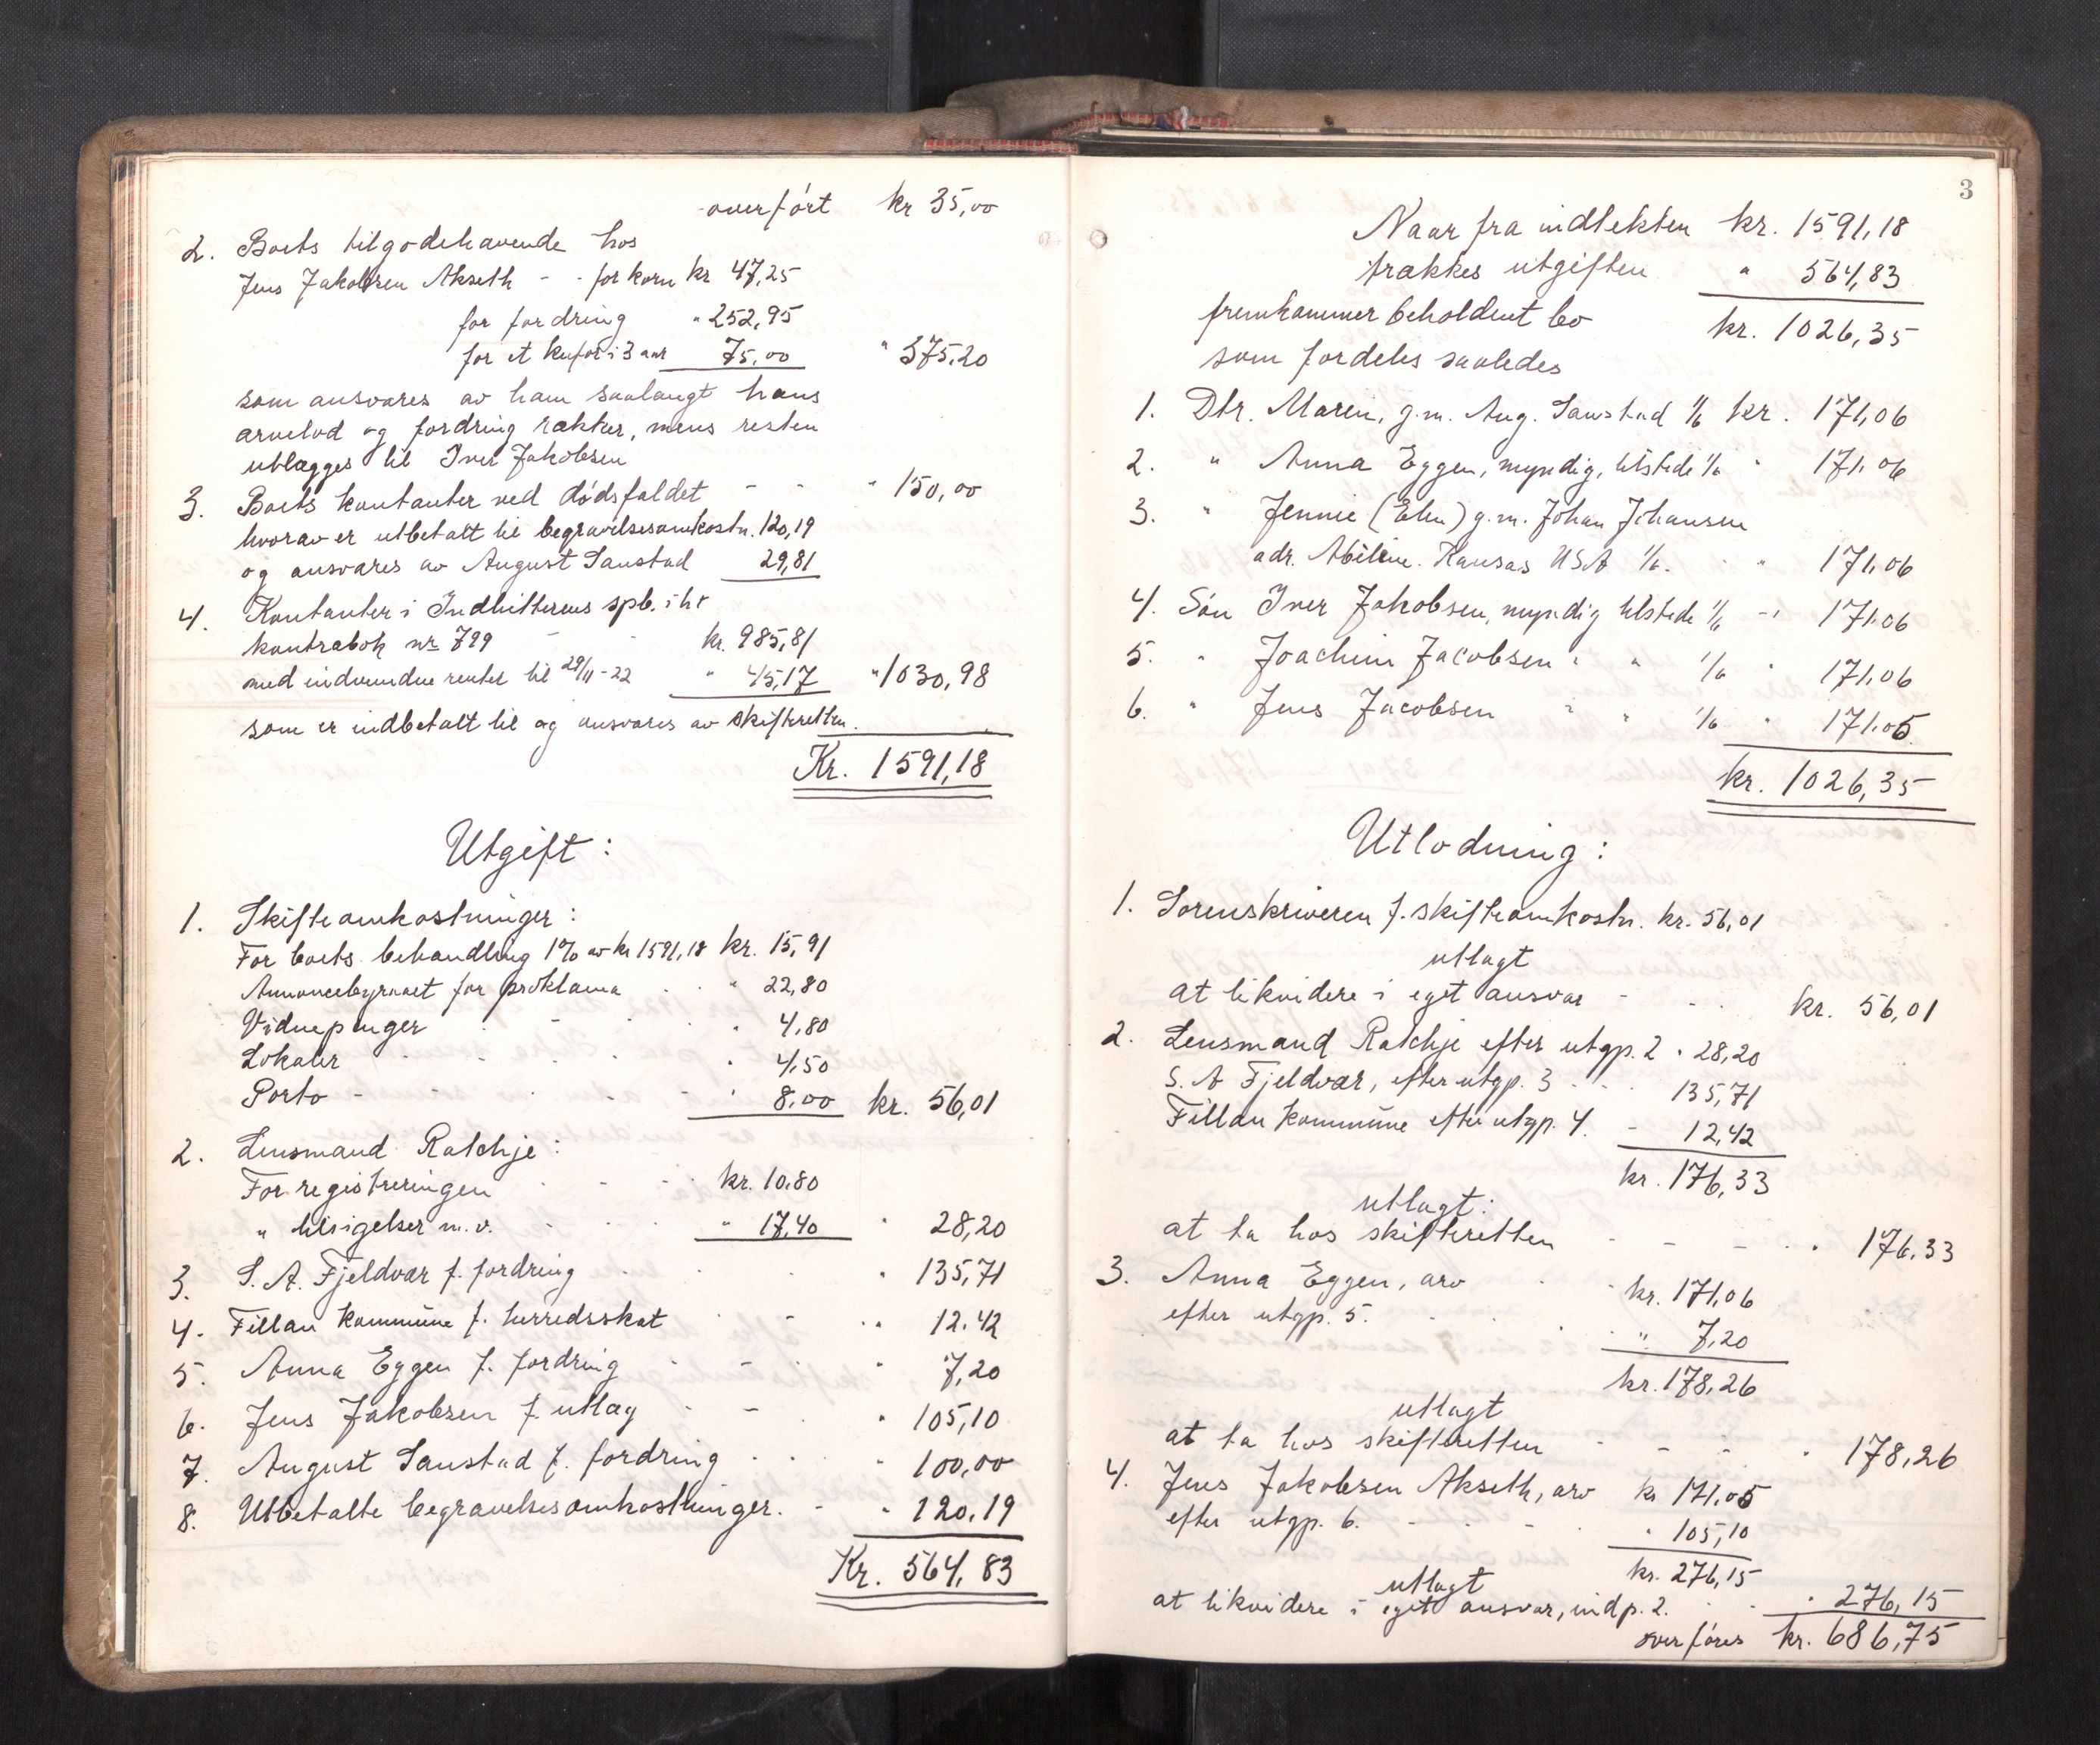 overført kr 35,00
2. Boets tilgodehavende hos
Jens Jakobsen Akseth - - for korn kr 47,25
for fordring " 252,95
for et kufor i 3 aar 75,00 " 375,20
som ansvares av ham saalangt hans
arvelod og fordring rækker, mens resten
utlægges til Iver Jakobsen
3. Boets kontanter ved dødsfaldet - - " 150,00
hvorav er utbetalt til begravelsesomkostn. 120,19
og ansvares av August Sanstad 29,81
4. Kontanter i Indhitterens spb. iht
kontrabok nr 799 - - kr. 985,81
med indvundne renter til 29/11-22 " 45,17 " 1030,98
som er indbetalt til og ansvares av skifteretten.
Kr. 1591,18
Utgift:
1. Skifteomkostninger:
For boets behandling 1% av kr 1591,18 kr. 15,91
Annoncebyraaet for proklama . . " 22,80
Vidnepenger . - . . " 4,80
Lokaler . - - . " 4,50
Porto - . - - " 8,00 kr. 56,01
2. Lensmand Ratchje:
For registreringen . . - kr. 10,80
" tilsigelser m.v. . . . " 17,40 " 28,20
3. S. A. Fjeldvær f. fordring . . . " 135,71
4. Fillan kommune f. herredsskat . - . " 12.42
5. Anna Eggen f. fordring . - . " 7,20
6. Jens Jakobsen f. utlæg . - . " 105,10
7. August Sanstad f. fordring . . . " 100,00
8. Utbetalte begravelsesomkostninger. - " 120,19
Kr. 564,83
3
Naar fra indtekten kr. 1591,18
trækkes utgiften " 564,83
fremkommer beholdent bo kr. 1026,35
som fordeles saaledes
1. Dtr. Maren, g.m. Aug. Sanstad 1/6 kr. 171,06
2. " Anna Eggen, myndig, tilstede 1/6 " 171,06
3. " Jennie (Elen) g.m. Johan Johansen
adr. Abilene. Kansas USA 1/6. . " 171,06
4. Søn Iver Jakobsen, myndig tilstede 1/6 - " 171,06
5. " Joachim Jacobsen " " 1/6 " 171,06
6. " Jens Jacobsen " " 1/6 " 171,05
kr. 1026,35
Utlodning:
1. Sorenskriveren f. skifteomkostn. kr. 56,01
utlagt
at likvidere i eget ansvar - - . kr. 56,01
2. Lensmand Ratchje efter utgp. 2 " 28,20
S. A Fjeldvær, efter utgp. 3 - - 135,71
Fillan kommune efter utgp. 4. - 12,42
kr. 176,33
utlagt:
at ta hos skifteretten - - - . " 176,33
3. Anna Eggen, arv . . kr. 171,06
efter utgp. 5. . . . " 7,20
kr. 178,26
utlagt
at ta hos skifteretten - - - " 178,26
4. Jens Jakobsen Akseth, arv kr 171,05
efter utgp. 6. - - . " 105,10
kr. 276,15
utlagt
at likvidere i eget ansvar, indp. 2. . . " 276,15
overføres kr. 686,75